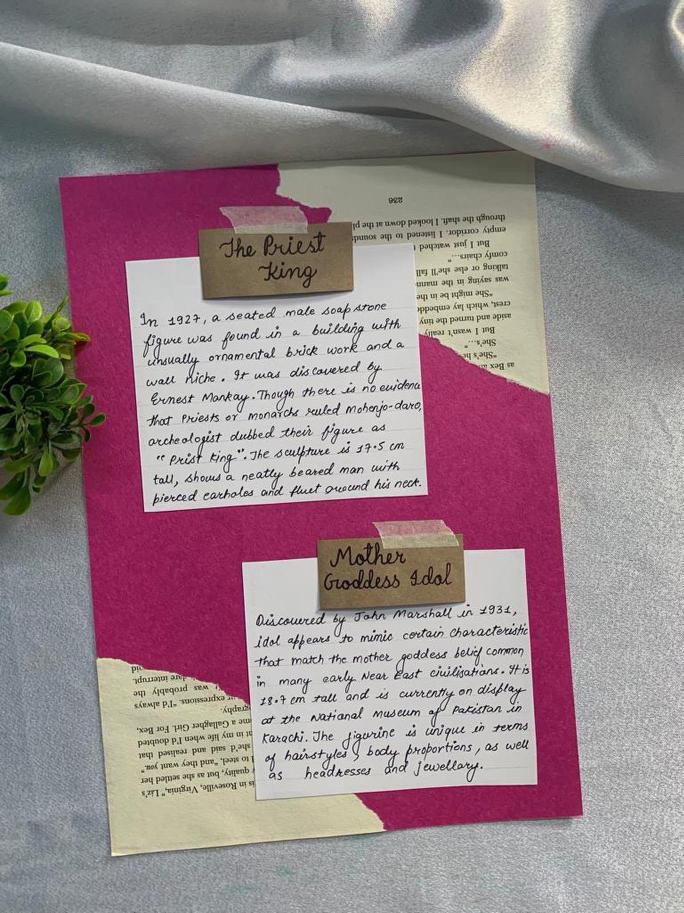 The Priest
King
In 1927, a seated male soap stone
figure was found in a building with
unsually ornamental brick work and a
wall niche. It was discovered by
Ernest Mankay. Though there is no evidence
that Priests or monarchs ruled mohenjo-daro,
archeologist dubbed their figure as
"Prist King". The sculpture is 17.5 cm
tall, shows a neatly beared man with
pierced earholes and fluet around his neck.
Mother
Goddess Idol
Discovered by John Marshall in 1931,
idol appears to mimic certain characteristic
that match the mother goddess belief common
in many early Near East civilisations. It is
18.7 cm tall and is currently on display
at the National Museum of Pakistan in
Karachi. The figurine is unique in terms
of hairstyles, body proportions, as well
as headresses and jewellary.
as Bex
"She's
She's..."
But I wasn't really
aside and turned the tiny
crest, which lay
"She might be in the
was saying in the
talking or else she'll
comfy chairs..."
But I just watched
empty corridor. I listened to the
through the shaft. I looked down at the
236
is in Roseville, Virginia," Liz's
quality, but as she settled her
to steel, "and they want you."
she'd said and realised that
in my life when I'd doubted
me a Gallagher Girl. For Bex,
expressions. "I'd always
was probably the
dare interrupt.